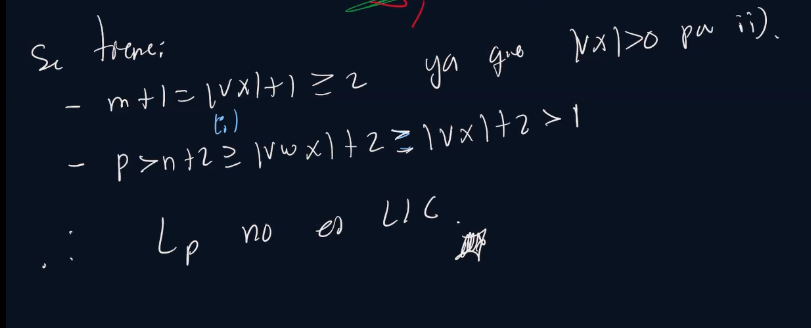 Se tiene:
- m+1 = |vx|+1 ≥ 2 ya que |vx|>0 por ii).
- p > n+2 ≥ |vwx|+2 ≥ |vx|+2 > 1
(i)
∴ Lp no es LIC.